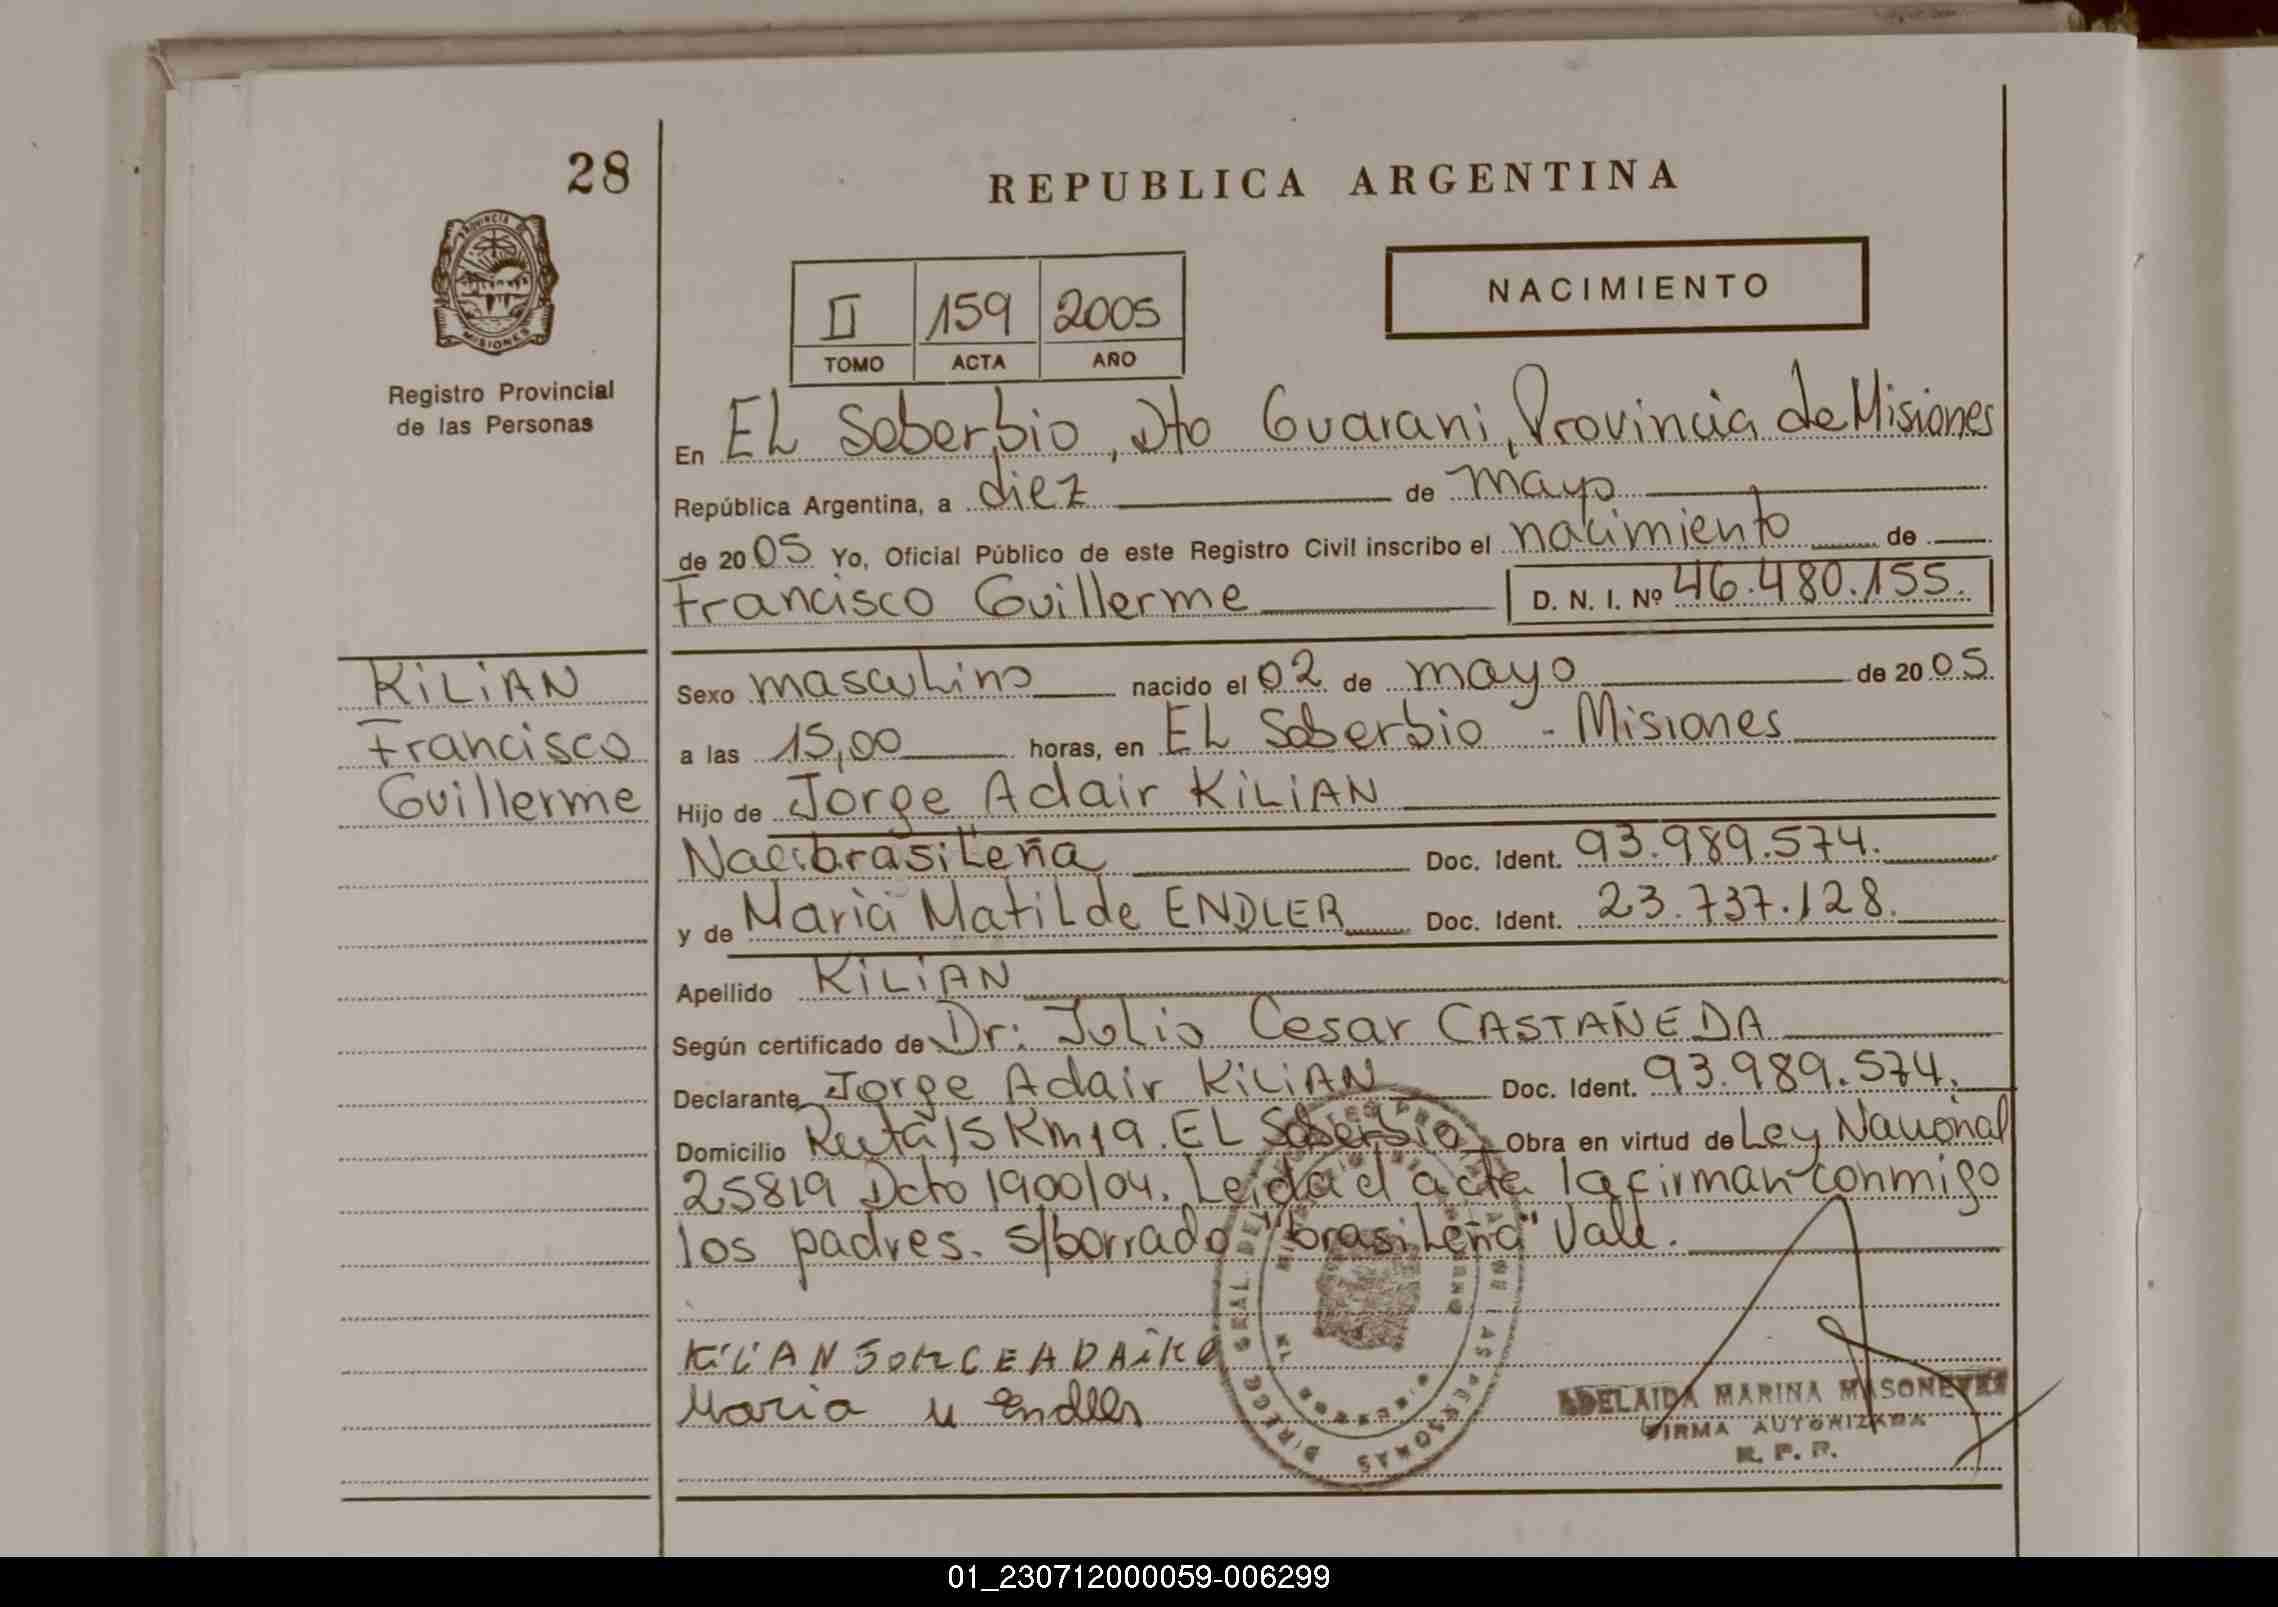 28
REPUBLICA ARGENTINA
PROVINCIA DE
MISIONES
Registro Provincial
de las Personas
NACIMIENTO
II 159 2005
TOMO ACTA AÑO
En EL Soberbio, Dto Guarani, Provincia de Misiones
República Argentina, a diez de mayo
de 2005 Yo, Oficial Público de este Registro Civil inscribo el nacimiento de
Francisco Guillerme D. N. I. Nº 46.480.155.
KiLiAN
Francisco
Guillerme
Sexo masculino nacido el 02 de mayo de 2005
a las 15,00 horas, en EL Soberbio - Misiones
Hijo de Jorge Adair KiLiAN
Nac: brasileña Doc. Ident. 93.989.574.
y de Maria Matilde ENDLER Doc. Ident. 23.737.128.
Apellido KiLiAN
Según certificado de Dr: Julio Cesar CASTAÑEDA
Declarante Jorge Adair KiLiAN Doc. Ident. 93.989.574.
Domicilio Ruta 15 Km 19. EL Soberbio Obra en virtud de Ley Nacional
25819 Dcto 1900/04. Leida el acta la firman conmigo
los padres. s/borrado "brasileña" Vale.
KiLiAN JORGE ADAiR
Maria M Endler
ADELAIDA MARINA
FIRMA AUTORIZADA
R. P. P.
01_230712000059-006299